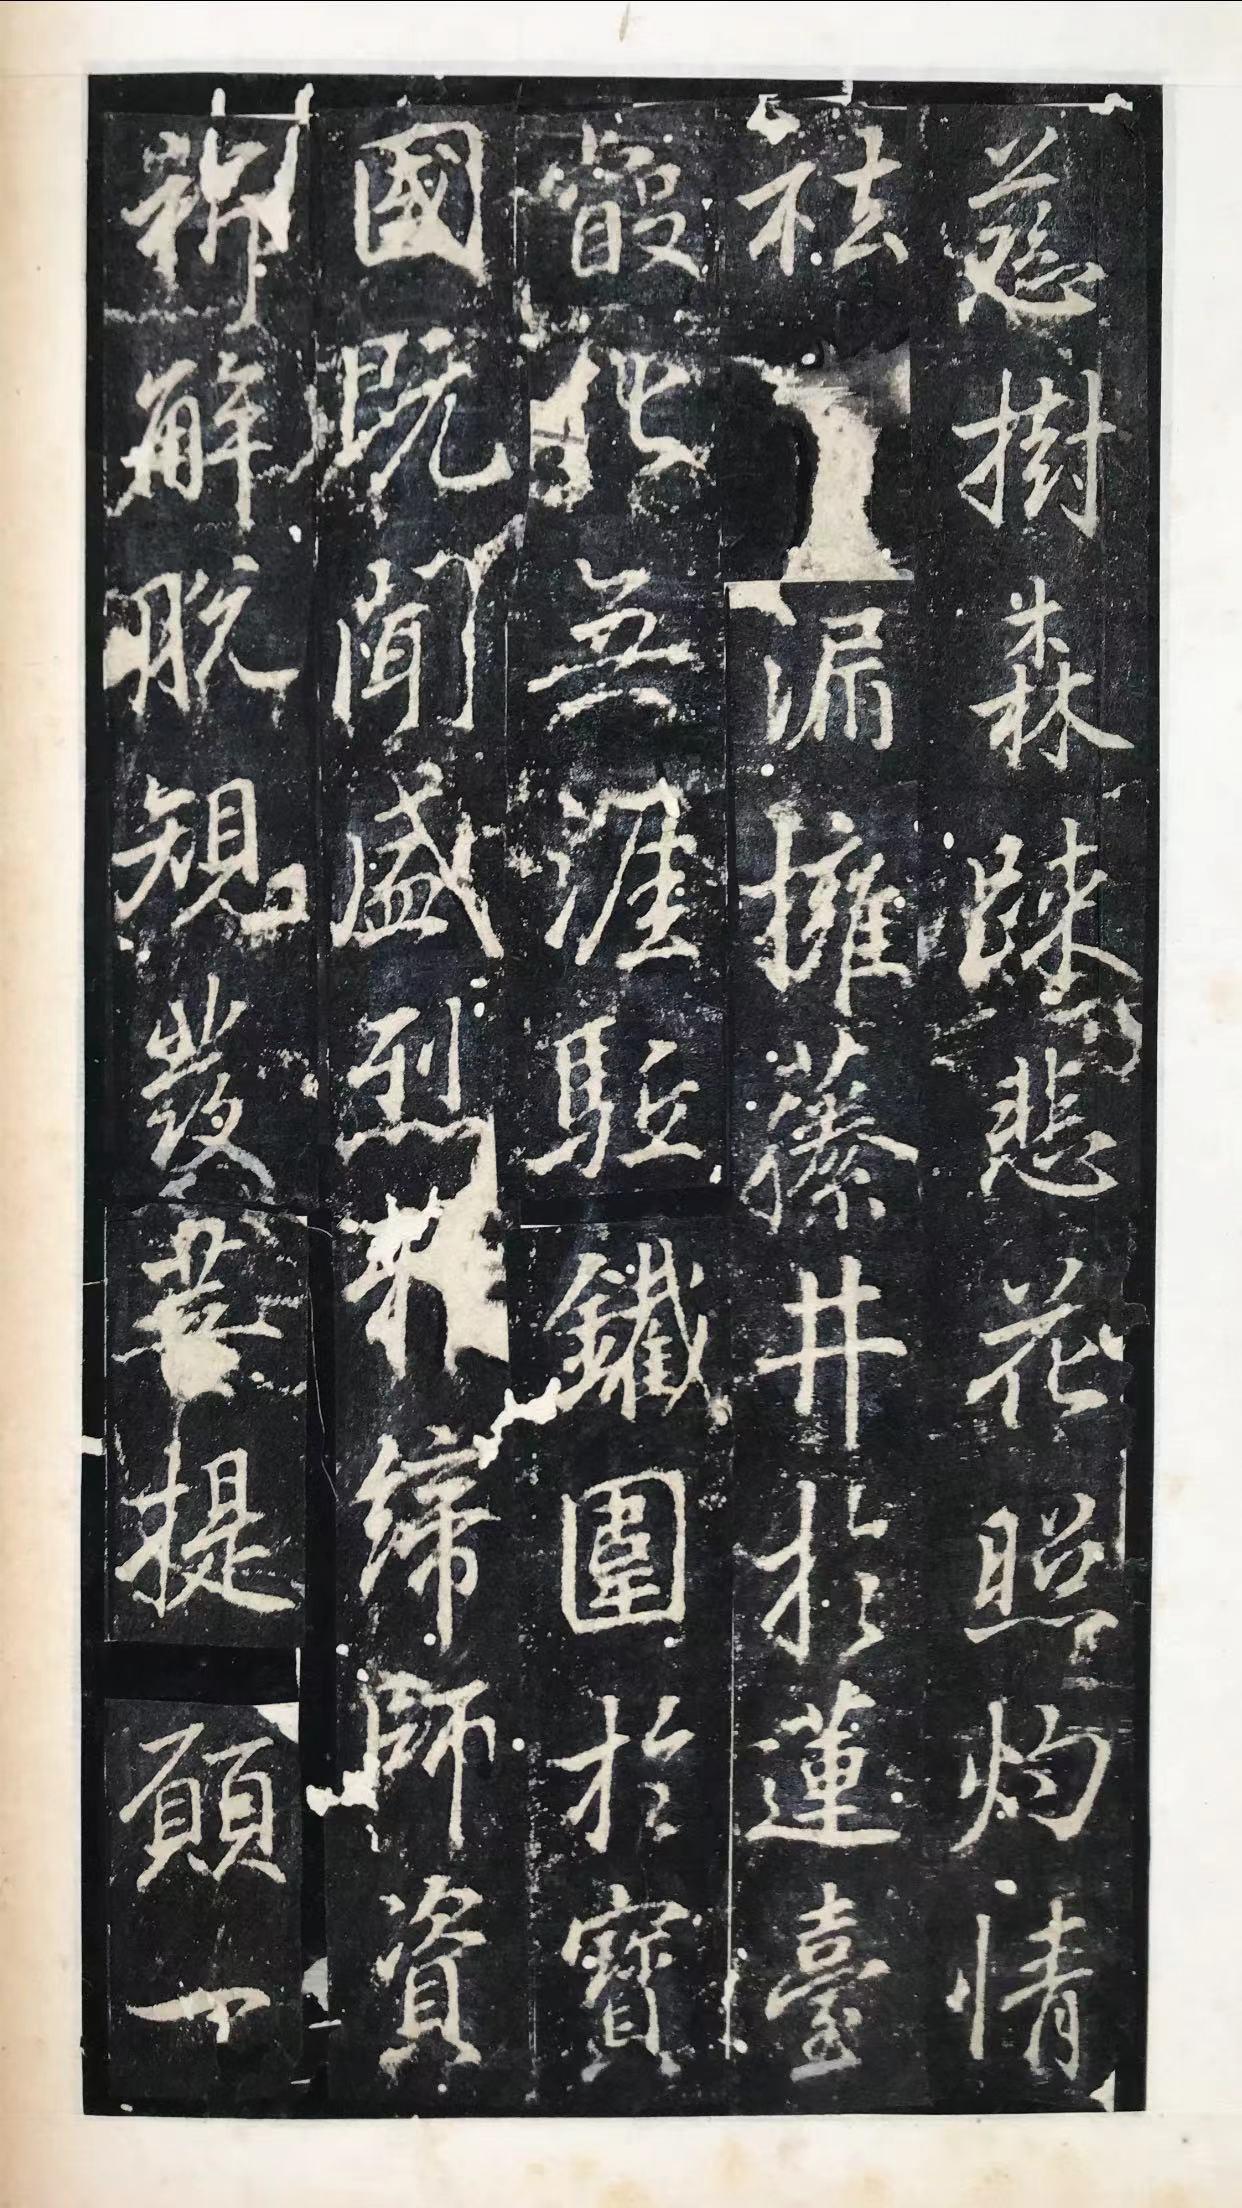 慈樹森疎悲花照灼情
祛漏擁藤井於蓮臺
化無涯駈鐵圍於寶
國既聞盛烈締師資
祈解脫規發菩提願一